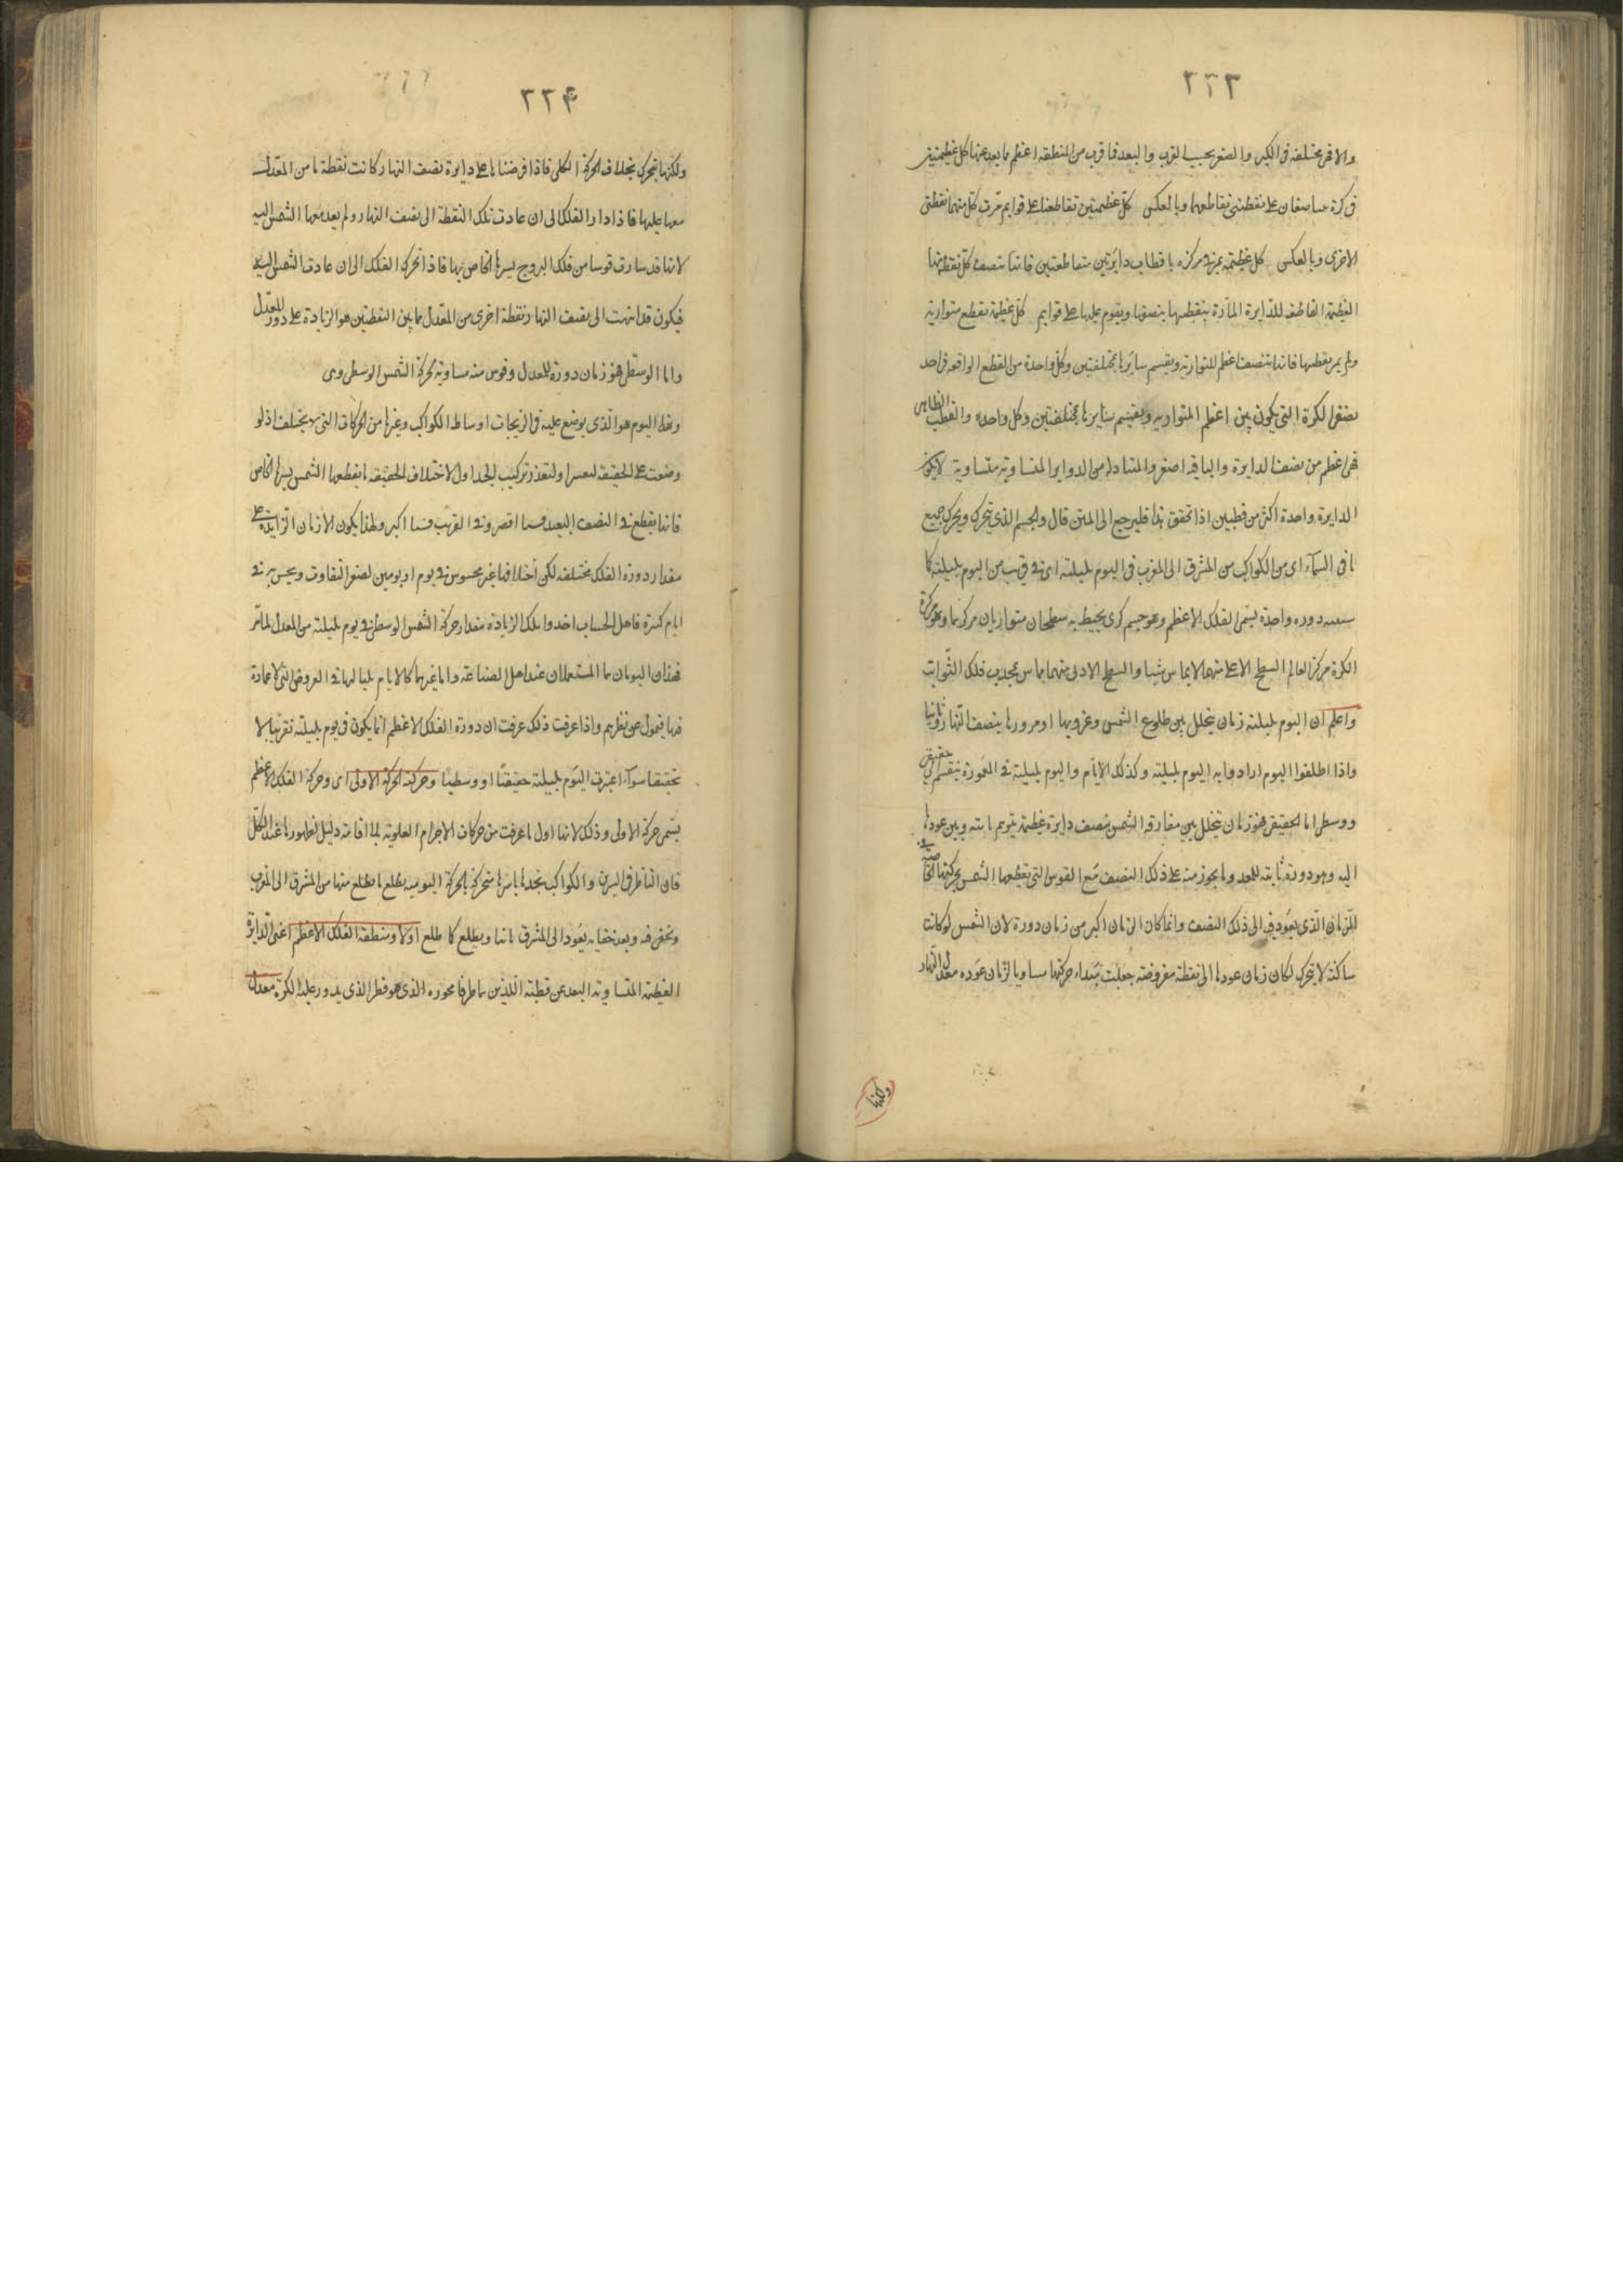 ٢٢٣
والاخر مختلفة فى الكبر والصغر بحسب القرب والبعد فما قرب من المنطقة اعظم مما بعد عنها كل عظيمتين
فى كرة يتناصفان على نقطتى تقاطعهما وبالعكس كل عظيمتين تقاطعتا على قوايم مرت كل منهما بقطبى
الاخرى وبالعكس كل عظيمة تمر فى كره باقطاب دايرتين متقاطعتين فانها تنصف كل قطعة منها
العظيمة القاطعة للدايرة المارة بقطبيها ينصفها ويقوم عليها على قوايم كل عظيمة تقطع متوازية
ولم يمر بقطبيها فانها تنصف اعظم المتوازية ويقسم سايرها بمختلفتين وكل واحدة من القطع الواقعة فى احد
نصفى الكرة التى يكون بين اعظم المتوازية ويقسم سايرها بمختلفتين وكل واحدة والقطب الظاهر
فهى اعظم من نصف الدايرة والباقية اصغر والمتبادلة من الدواير المتساوية متساوية لا يكون
الدايرة واحدة اكثر من قطبين اذا تحقق هذا فليرجع الى المتن قال والجسم الذى يتحرك ويحرك جميع
ما فى السماء اى من الكواكب من المشرق الى المغرب فى اليوم بليلته اى فى قريب من اليوم بليلته كما
دوره واحدة يسمى الفلك الاعظم وهو جسم كرى يحيط به سطحان متوازيان مركزهما وهو مركز
الكرة مركز العالم السطح الاعلى منهما لا يماس شيئا والسطح الادنى منهما يماس محدب فلك الثوابت
واعلم ان اليوم بليلته زمان يتخلل بين طلوع الشمس وغروبها او مرورها بنصف النهار ثانيا
واذا اطلقوا اليوم ارادوا به اليوم بليلته وكذلك الايام واليوم بليلته فى المعمورة ينقسم الى حقيقى
ووسطى اما الحقيقى فهو زمان يتخلل بين مفارقة الشمس نصف دايرة عظيمة يتوهم ثابتة وبين عودها
اليه وهو دورة ثابتة للمعدل وما يجوز منه على ذلك النصف مع القوس التى تقطعها الشمس بحركتها الخاصة فى
الزمان الذى يعود فيه الى ذلك النصف وانما كان الزمان اكبر من زمان دورة لان الشمس لو كانت
ساكنة لا تتحرك لكان زمان عودها الى نقطة مفروضة جعلت مبداء حركتها مساويا لزمان عوده معدل النهار
ولكنها
٢٢۴
ولكنها تتحرك بخلاف الحركة الكلى فاذا فرضناها على دايرة نصف النهار كانت نقطة ما من المعدل
معها عليها فاذا دار الفلك الى ان عادت تلك النقطة الى نصف النهار ولم يعد معها الشمس اليه
لانها قد سارت قوسا من فلك البروج بسيرها الخاص بها فاذا تحرك الفلك الى ان عادت الشمس اليه
فيكون قد انتهت الى نصف النهار نقطة اخرى من المعدل فما بين النقطتين هو الزيادة على دور المعدل
واما الوسطى فهو زمان دورة للمعدل وقوس منه مساوية لحركة الشمس الوسطى وى
وهذا اليوم هو الذى يوضع عليه فى الزيجات اوساط الكواكب وغيرها من الحركات التى لا يختلف اذ لو
وضعت على الحقيقة لتعسر او لتعذر تركيب الجداول لاختلاف الحقيقة ما يقطعها الشمس بسيرها الخاص
فانها يقطع فى النصف البعيد قسما اقصر وفى القريب قسما اكبر ولهذا يكون الازمان الزايدة على
مقدار دورة الفلك مختلفة لكن اختلافها غير محسوس فى يوم او يومين لصغر التفاوت ويحس به فى
ايام كثيرة فاهل الحساب اخذوا تلك الزيادة مقدار حركة الشمس الوسطى فى يوم بليلته من المعدل لما مر
فهذان اليومان هما المستعملان عند اهل الصناعة واما غيرهما كالايام بلياليها فى العروض التى لا عمارة
فيها فبمعزل عن نظرهم واذا عرفت ذلك عرفت ان دورة الفلك الاعظم انما يكون فى يوم بليلته تقريبا لا
تحقيقا سواء اعتبرت اليوم بليلته حقيقيا او وسطيا وحركته الحركة الاولى اى وحركة الفلك الاعظم
يسمى حركة الاولى وذلك لانها اول ما عرفت من حركات الاجرام العلوية بلا اقامة دليل لظهورها عند الكل
فان الناظر فى النيرين والكواكب يجدها باسرها متحركة بالحركة اليومية يطلع ما يطلع منها من المشرق الى المغرب
وتخفى فيه وبعد خفايه يعود الى المشرق ثانيا ويطلع كما طلع اولا ومنطقة الفلك الاعظم اعنى الدايرة
العظيمة المتساوية البعد عن قطبيه اللذين هما طرفا محوره الذى هو قطر الذى يدور عليه الكرة معدل